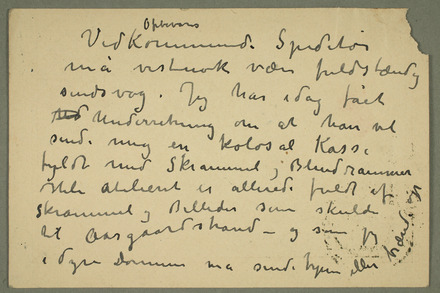 Opbevares
Vedkommende Speditør
må vistnok være fuldstændig
sindsvag. Jeg har idag fået
Underretning om at han vil
sende mig en kolosal Kasse
fyldt med Skrammel og Blendrammer
Hele atelieret er allerede fuldt af
Skrammel og Billeder som skulde
til Aasgaardstrand – og som jeg
i dyre Domme må sende hjem eller
brænde op